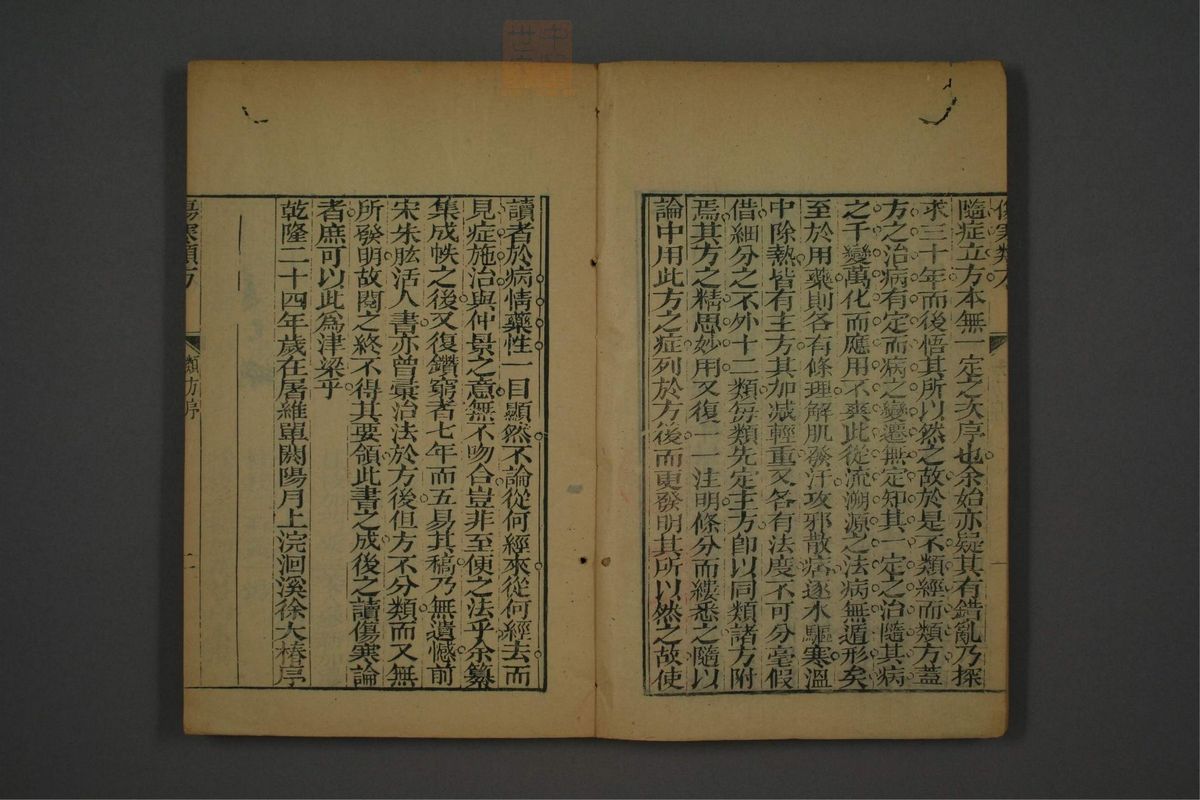 傷寒類方
隨症立方本無一定之次序也余始亦疑其有錯亂乃探
求三十年而後悟其所以然之故於是不類經而類方蓋
方之治病有定而病之變遷無定知其一定之治隨其病
之千變萬化而應用不爽此從流溯源之法病無遁形矣
至於用藥則各有條理解肌發汗攻邪散痞逐水驅寒溫
中除熱皆有主方其加减輕重又各有法度不可分毫假
借細分之不外十二類每類先定主方卽以同類諸方附
焉其方之精思妙用又復一一注明條分而縷悉之隨以
論中用此方之症列於方後而更發明其所以然之故使
讀者於病情藥性一目顯然不論從何經來從何經去而
見症施治與仲景之意無不吻合豈非至便之法乎余纂
集成帙之後又復鑽窮者七年而五易其稿乃無遺憾前
宋朱肱活人書亦曾彙治法於方後但方不分類而又無
所發明故閱之終不得其要領此書之成後之讀傷寒論
者庶可以此爲津梁乎
乾隆二十四年歲在屠維單閼陽月上浣洄溪徐大椿序
傷寒類方
類方序
二